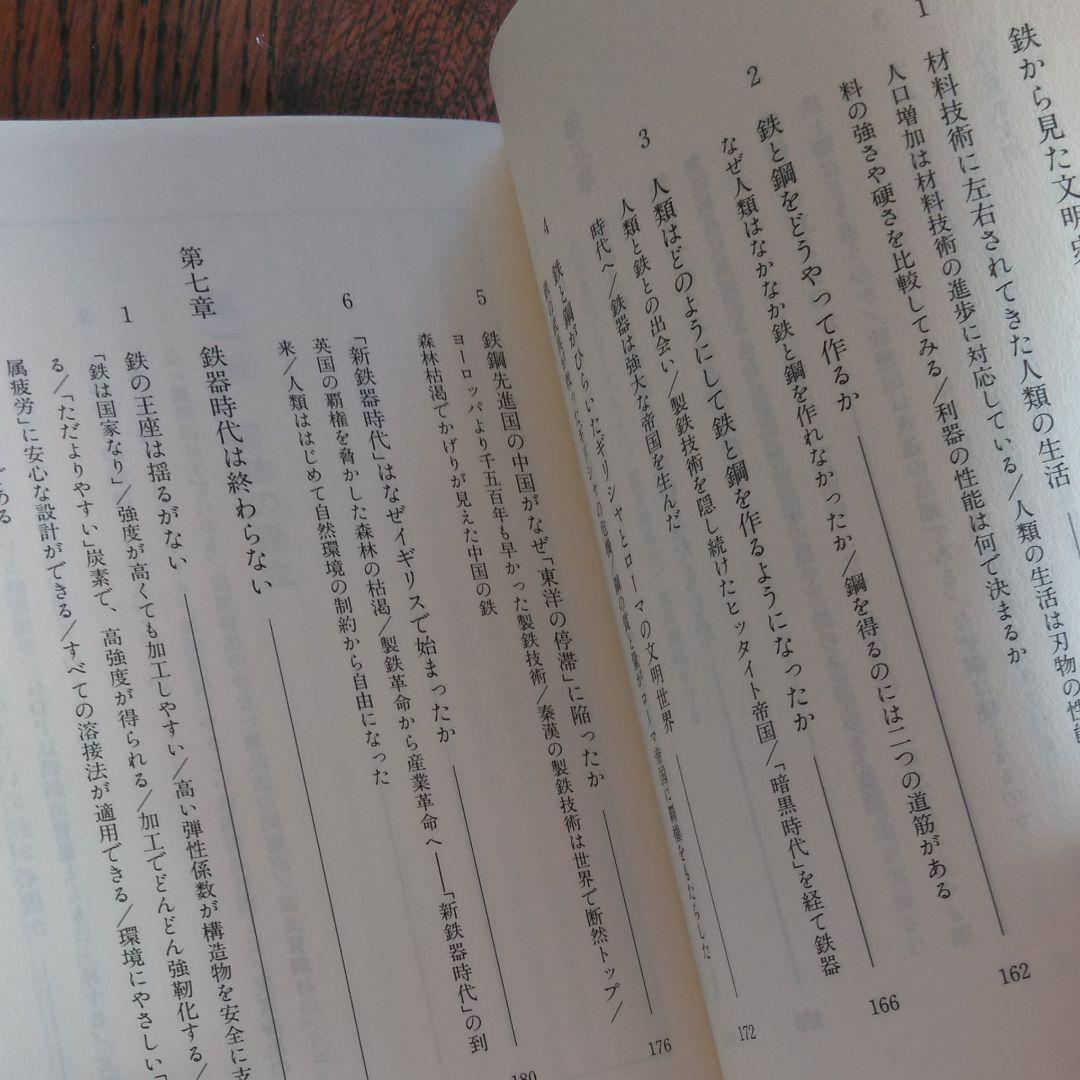 鉄から見た文明史
1 材料技術に左右されてきた人類の生活
人口増加は材料技術の進歩に対応している/人類の生活は刃物の性能
料の強さや硬さを比較してみる/利器の性能は何で決まるか
162
2 鉄と鋼をどうやって作るか
なぜ人類はなかなか鉄と鋼を作れなかったか/鋼を得るのには二つの道筋がある
166
3 人類はどのようにして鉄と鋼を作るようになったか
人類と鉄との出会い/製鉄技術を隠し続けたヒッタイト帝国/「暗黒時代」を経て鉄器
時代へ/鉄器は強大な帝国を生んだ
172
4 鉄と鋼がひらいたギリシャとローマの文明世界
ローマ帝国に覇権をもたらした
176
5 鉄鋼先進国の中国がなぜ「東洋の停滞」に陥ったか
ヨーロッパより千五百年も早かった製鉄技術/秦漢の製鉄技術は世界で断然トップ/
森林枯渇でかげりが見えた中国の鉄
180
6 「新鉄器時代」はなぜイギリスで始まったか
英国の覇権を脅かした森林の枯渇/製鉄革命から産業革命へ――「新鉄器時代」の到
来/人類ははじめて自然環境の制約から自由になった
第七章 鉄器時代は終わらない
1 鉄の王座は揺るがない
「鉄は国家なり」/強度が高くても加工しやすい/高い弾性係数が構造物を安全に支
る/「ただよりやすい」炭素で、高強度が得られる/加工でどんどん強靭化する/
属疲労」に安心な設計ができる/すべての溶接法が適用できる/環境にやさしい「
である